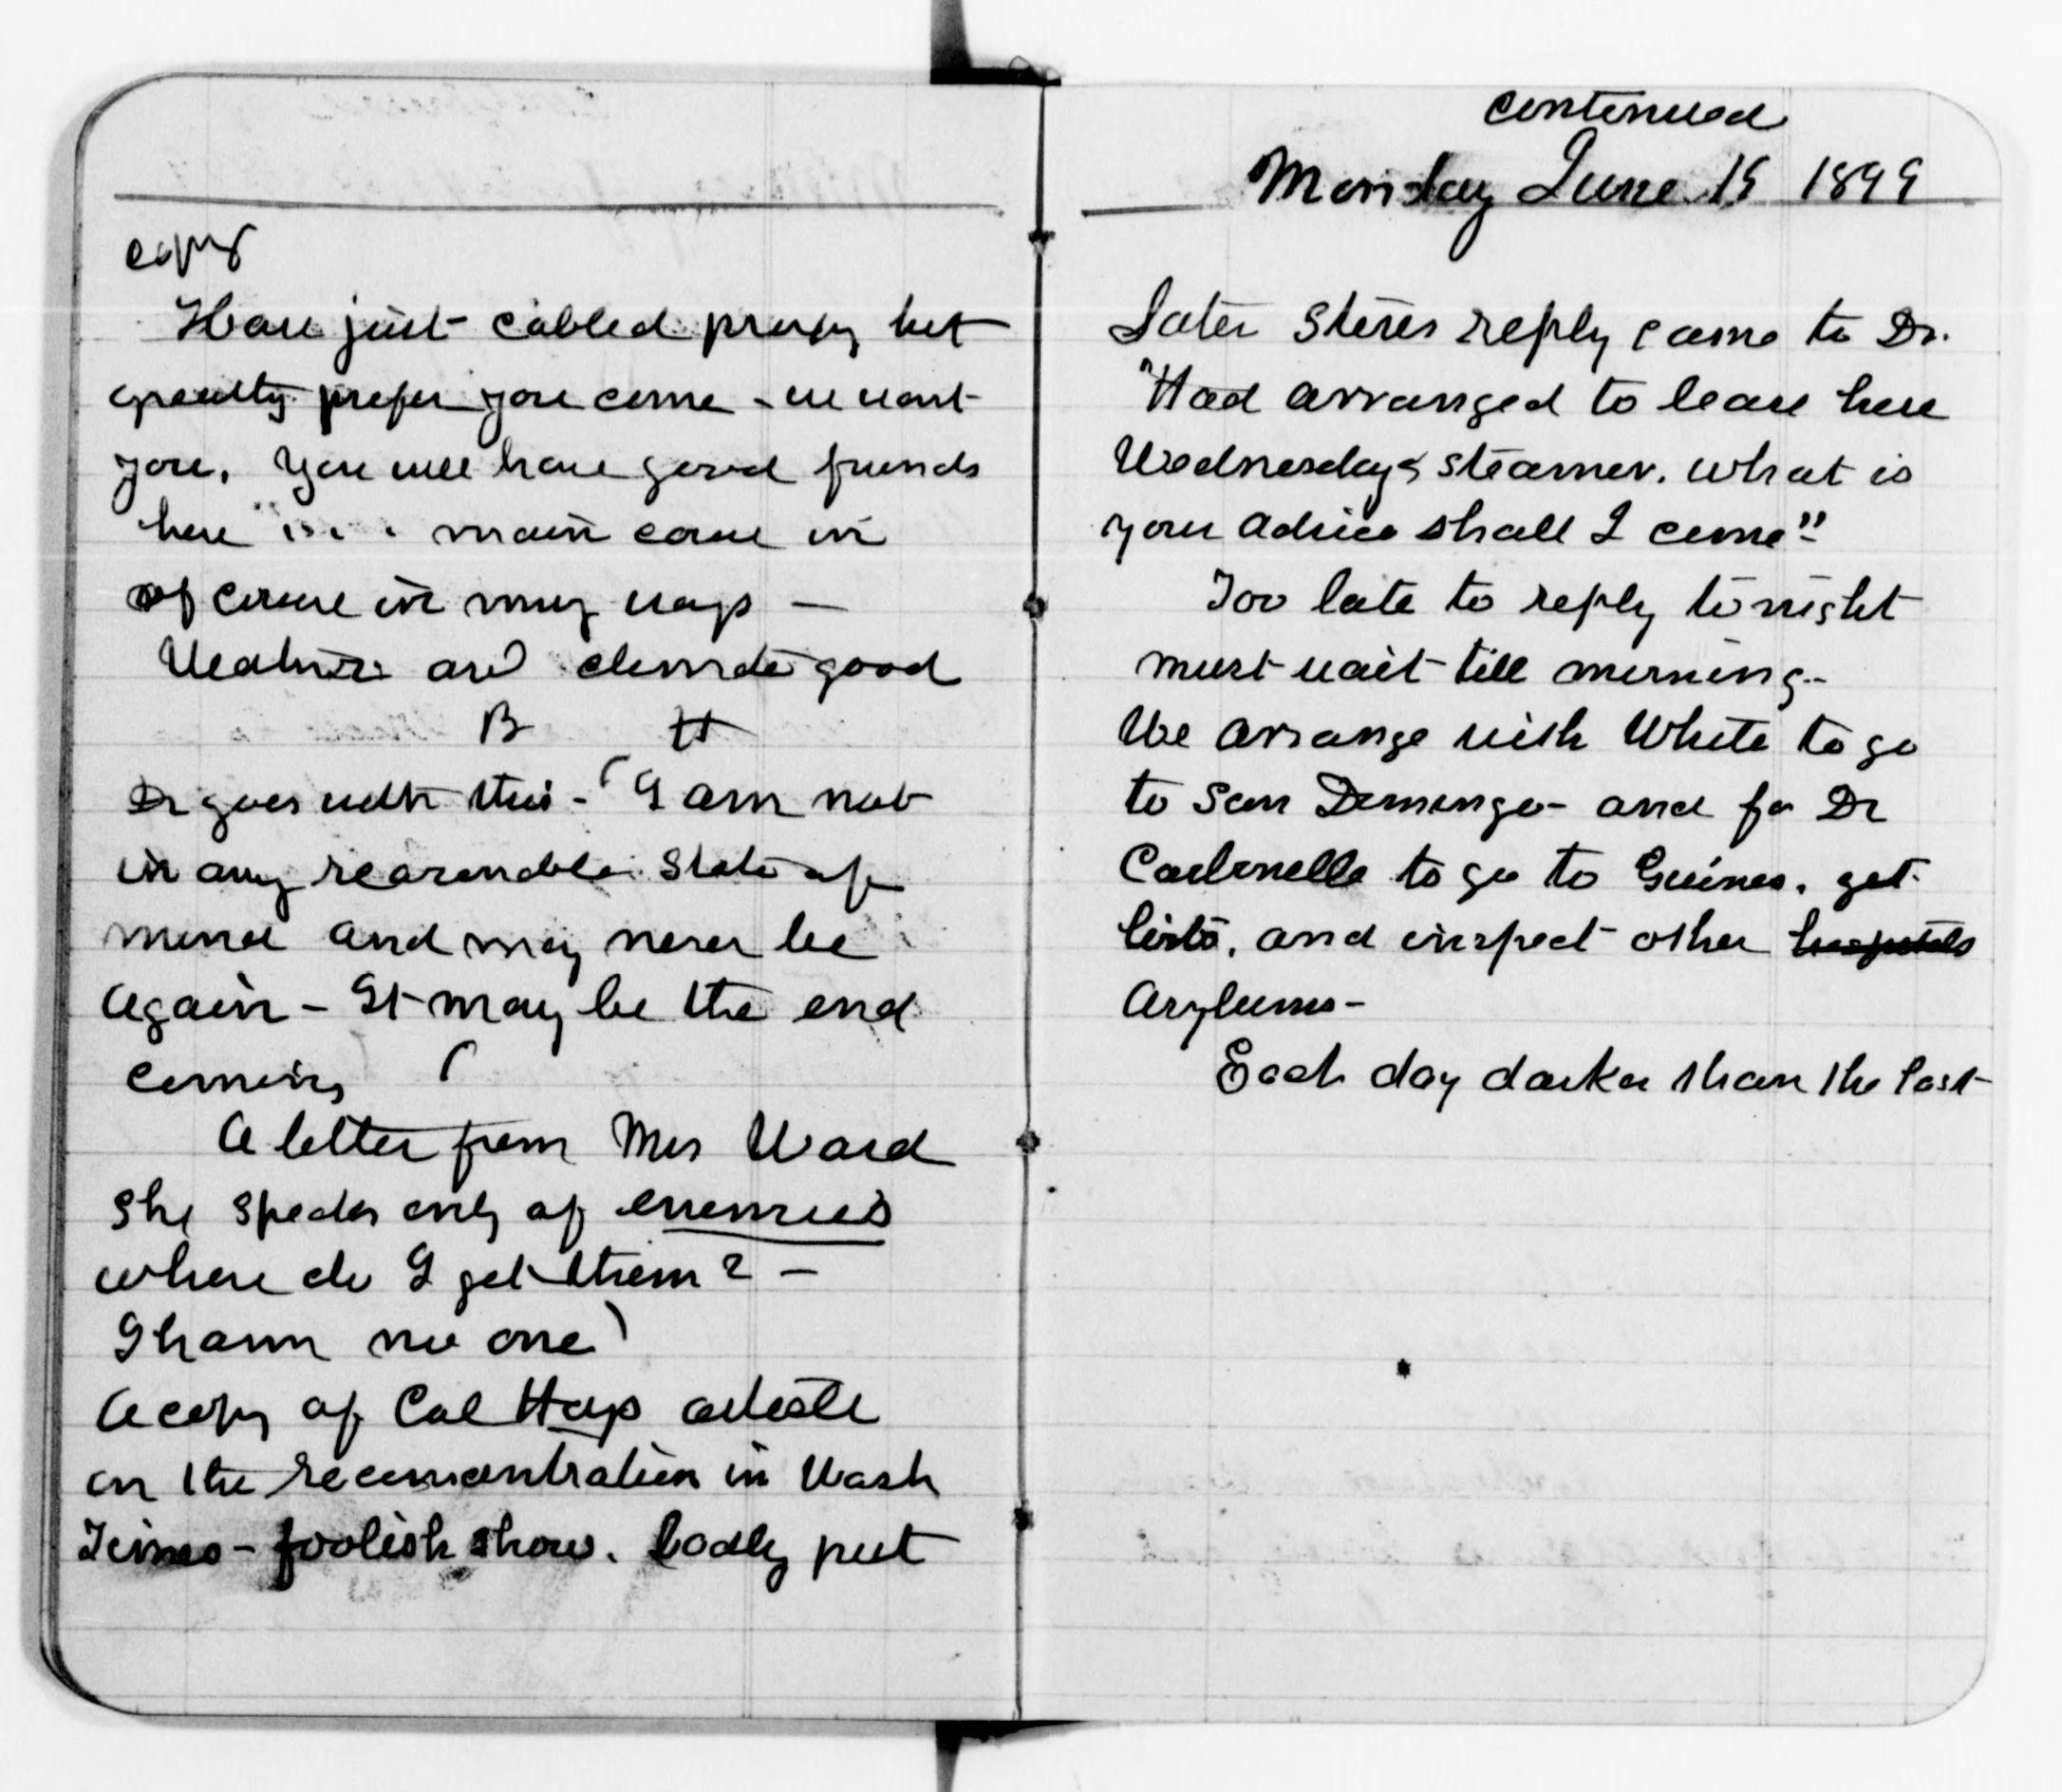 copy
Have just cabled proxy but
greatly prefer you come - we want
you, You will have good friends
here main come in
of course in many ways -
Weather and climate good
B H
Dr goes with this - (I am not
in any reasonable state of
mind and may never be
again - It may be the end
coming (
A letter from Mrs Ward
She speaks only of enemies
where do I get them? -
I harm no one)
A copy of Col Hays article
on the reconcentration in Wash
Times - foolish show. badly put
continued
Monday June 19 1899
Later Steres reply came to Dr.
"Had arranged to leave here
Wednesdays steamer. What is
your advice shall I come"
Too late to reply to night
must wait till morning -
We arrange with White to go
to San Domingo - and for Dr
Carbonelle to go to Guines, get
lists, and inspect other hospitals
Asylums -
Each day darker than the last